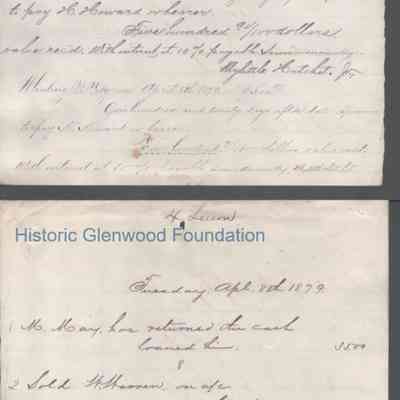 to pay H. Howard or bearer
Five hundred 00/100 dollars
value recd. With interest at 10% payable Semiannually
Myrtle Hatchet. Jr
April 8th 1879
One hundred and twenty days after date
to pay H. Howard or bearer
Five hundred 00/100 dollars value recd.
With interest at 10% payable semiannually
4 Lesson
Historic Glenwood Foundation
Tuesday, Apl. 8th 1879
1 M. May, has returned the cash
loaned him. 3500
8
2 Sold W. Warren, on a/c